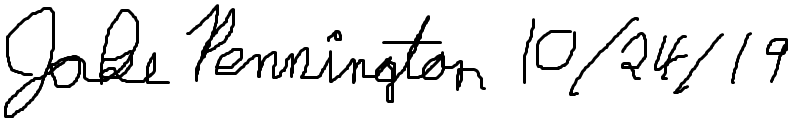 Jake Pennington 10/24/19